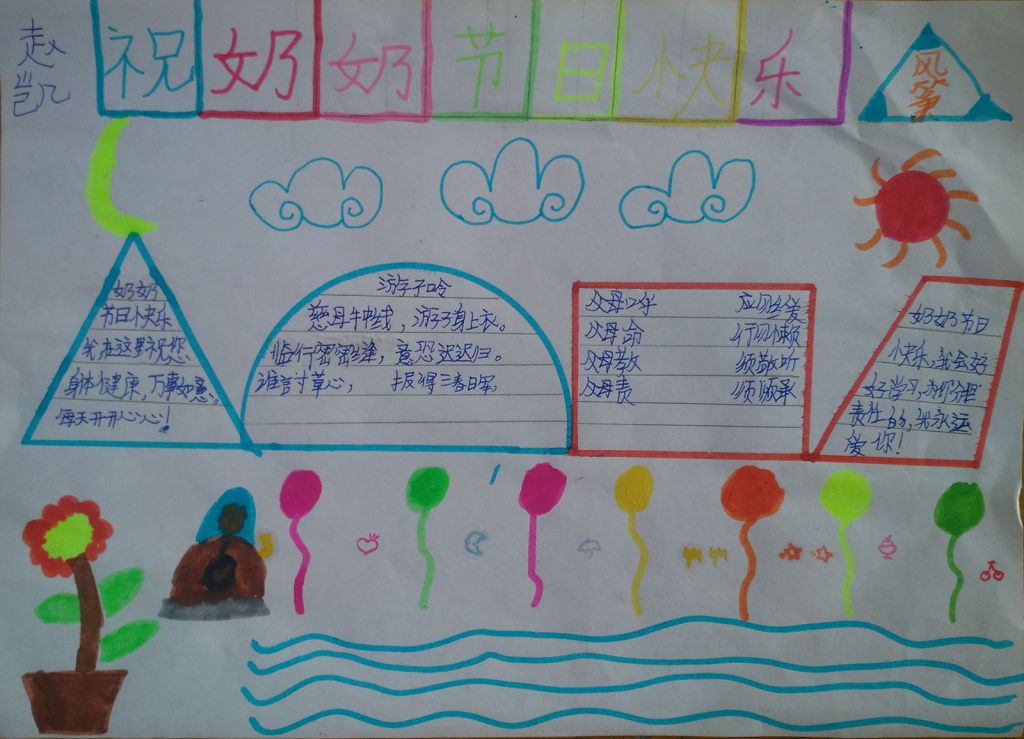 赵凯
祝奶奶节日快乐
风筝
奶奶
节日快乐
我在这里祝您
身体健康，万事如意。
每天开开心心！
游子吟
慈母手中线，游子身上衣。
临行密密缝，意恐迟迟归。
谁言寸草心， 报得三春日军
父母呼 应勿缓
父母命 行勿懒
父母教 须敬听
父母责 须顺承
奶奶节日
快乐，我会好
好学习，为你分担
责任的，我永远
爱你！